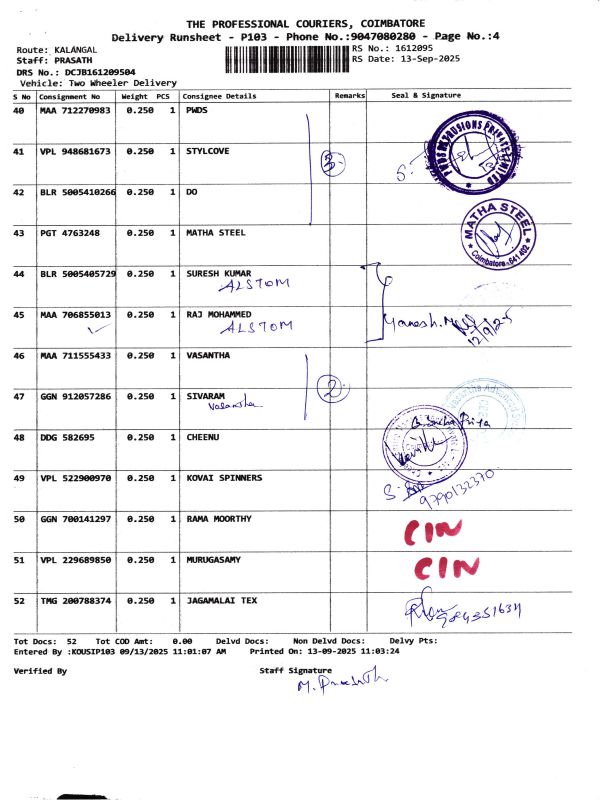 THE PROFESSIONAL COURIERS, COIMBATORE
Delivery Runsheet - P103 - Phone No.:9047080280 - Page No.:4
Route: KALANGAL
RS No.: 1612095
Staff: PRASATH
RS Date: 13-Sep-2025
DRS No.: DCJB161209504
Vehicle: Two Wheeler Delivery
S No Consignment No Weight PCS Consignee Details Remarks Seal & Signature
40 MAA 712270983 0.250 1 PWDS
41 VPL 948681673 0.250 1 STYLCOVE
3
42 BLR 5005410266 0.250 1 DO
43 PGT 4763248 0.250 1 MATHA STEEL
MATHA STEEL
Coimbatore - 641 402
44 BLR 5005405729 0.250 1 SURESH KUMAR
ALSTOM
45 MAA 706855013 0.250 1 RAJ MOHAMMED
ALSTOM
46 MAA 711555433 0.250 1 VASANTHA
2
47 GGN 912057286 0.250 1 SIVARAM
Vasantha
48 DDG 582695 0.250 1 CHEENU
49 VPL 522900970 0.250 1 KOVAI SPINNERS
9790132370
50 GGN 700141297 0.250 1 RAMA MOORTHY
CIN
51 VPL 229689850 0.250 1 MURUGASAMY
CIN
52 TMG 200788374 0.250 1 JAGAMALAI TEX
Tot Docs: 52 Tot COD Amt: 0.00 Delvd Docs: Non Delvd Docs: Delvy Pts:
Entered By :KOUSIP103 09/13/2025 11:01:07 AM Printed On: 13-09-2025 11:03:24
Verified By Staff Signature
M. Prasath